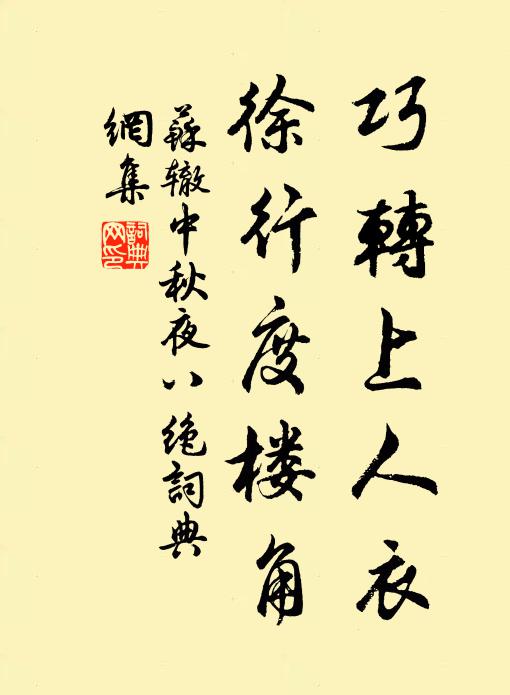 巧轉上人衣
徐行度楼角
蘇辙中秋夜八绝詞典
網集
詞典
网印